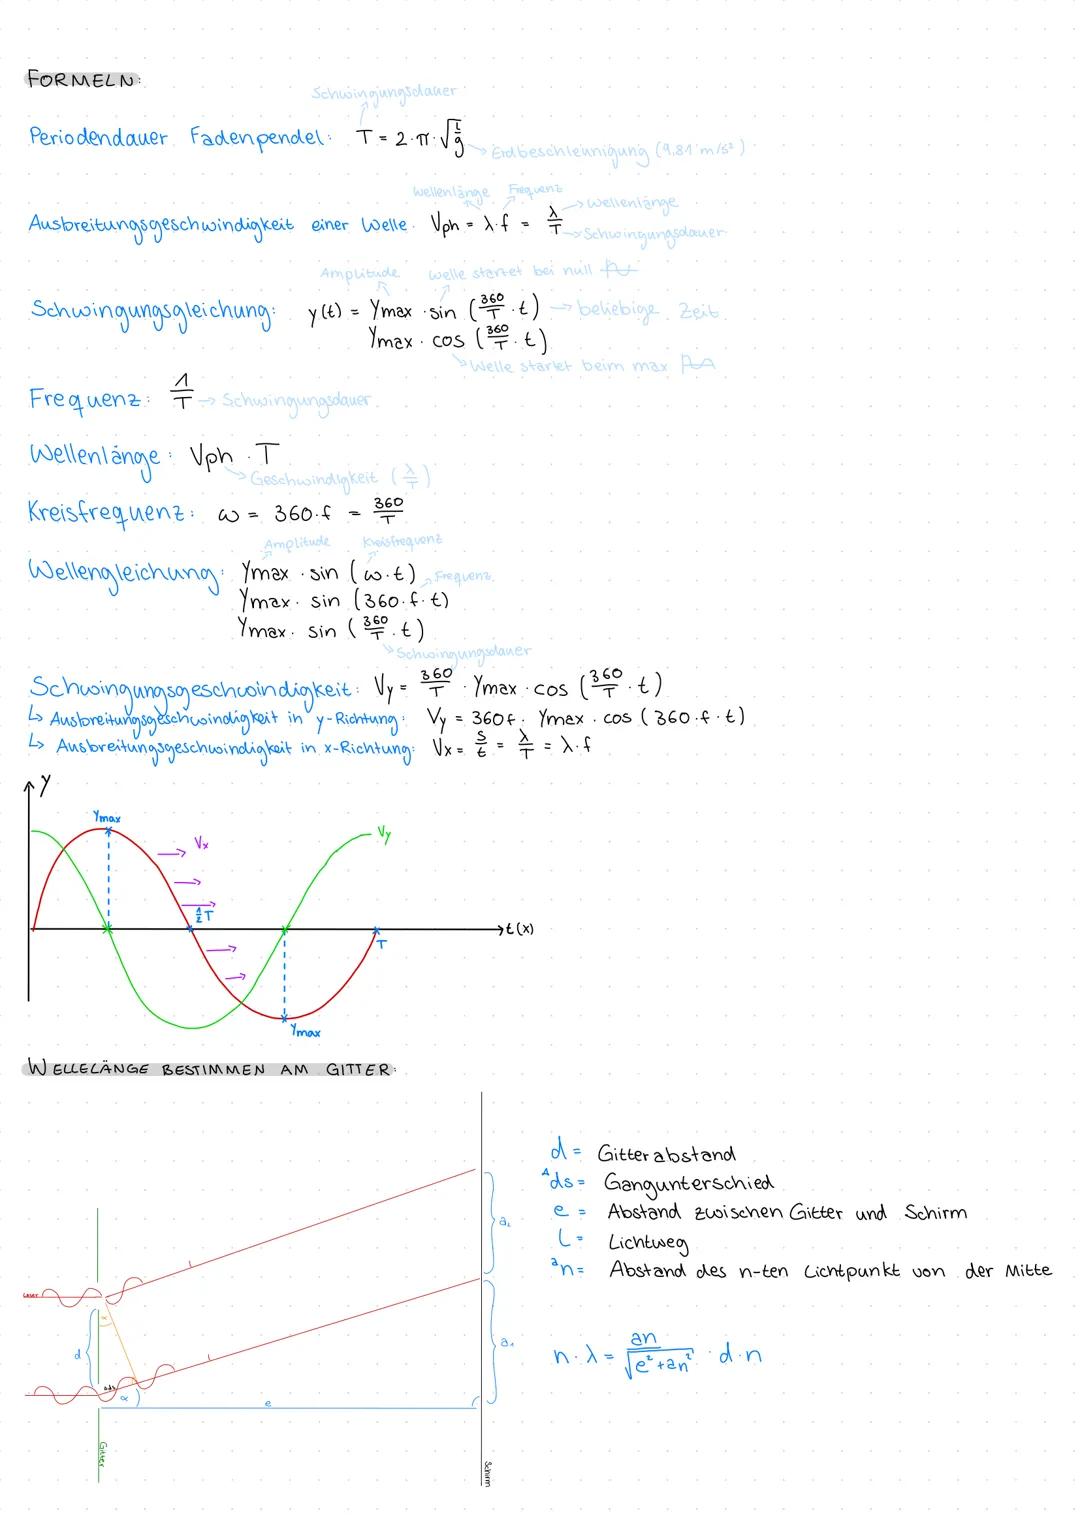 FORMELN:
Schwingungsdauer
Periodendauer Fadenpendel: T = 2·π·√(l/g)
Erdbeschleunigung (9,81 m/s²)
Wellenlänge Frequenz
Wellenlänge
Ausbreitungsgeschwindigkeit einer Welle: Vph = λ·f = λ/T
Schwingungsdauer
Amplitude Welle startet bei null
Schwingungsgleichung: y(t) = Ymax · sin (360/T · t) → beliebige Zeit
Ymax · cos (360/T · t)
Welle startet beim max
Frequenz: 1/T → Schwingungsdauer
Wellenlänge: Vph · T
Geschwindigkeit (λ/T)
Kreisfrequenz: ω = 360·f = 360/T
Amplitude Kreisfrequenz
Wellengleichung: Ymax · sin (ω·t)
Frequenz
Ymax · sin (360·f·t)
Ymax · sin (360/T · t)
Schwingungsdauer
Schwingungsgeschwindigkeit: Vy = 360/T · Ymax · cos (360/T · t)
↳ Ausbreitungsgeschwindigkeit in y-Richtung: Vy = 360f · Ymax · cos (360·f·t)
↳ Ausbreitungsgeschwindigkeit in x-Richtung: Vx = s/t = λ/T = λ·f
y
Ymax
Vx
Vy
1/2 T
t(x)
T
Ymax
WELLELÄNGE BESTIMMEN AM GITTER:
d = Gitterabstand
Δds = Gangunterschied
e = Abstand zwischen Gitter und Schirm
l = Lichtweg
an = Abstand des n-ten Lichtpunkt von der Mitte
a₂
l
Laser
α
d
l
a₁
n·λ = an/√(e²+an²) · d·n
Δds
α
e
Gitter
Schirm